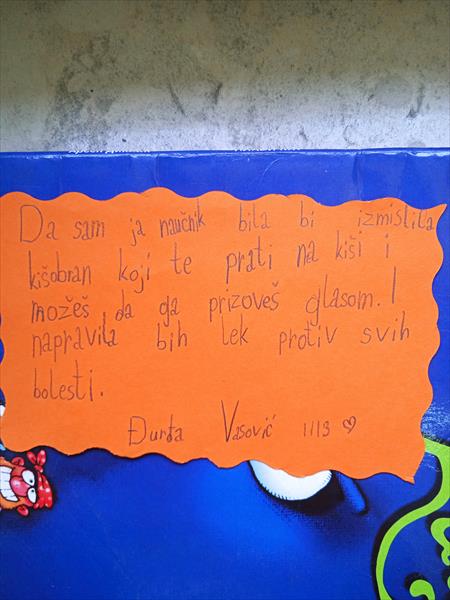 Da sam ja naučnik bila bi izmislila
kišobran koji te prati na kiši i
možeš da ga prizoveš glasom. I
napravila bih lek protiv svih
bolesti.
Đurđa Vasović III3